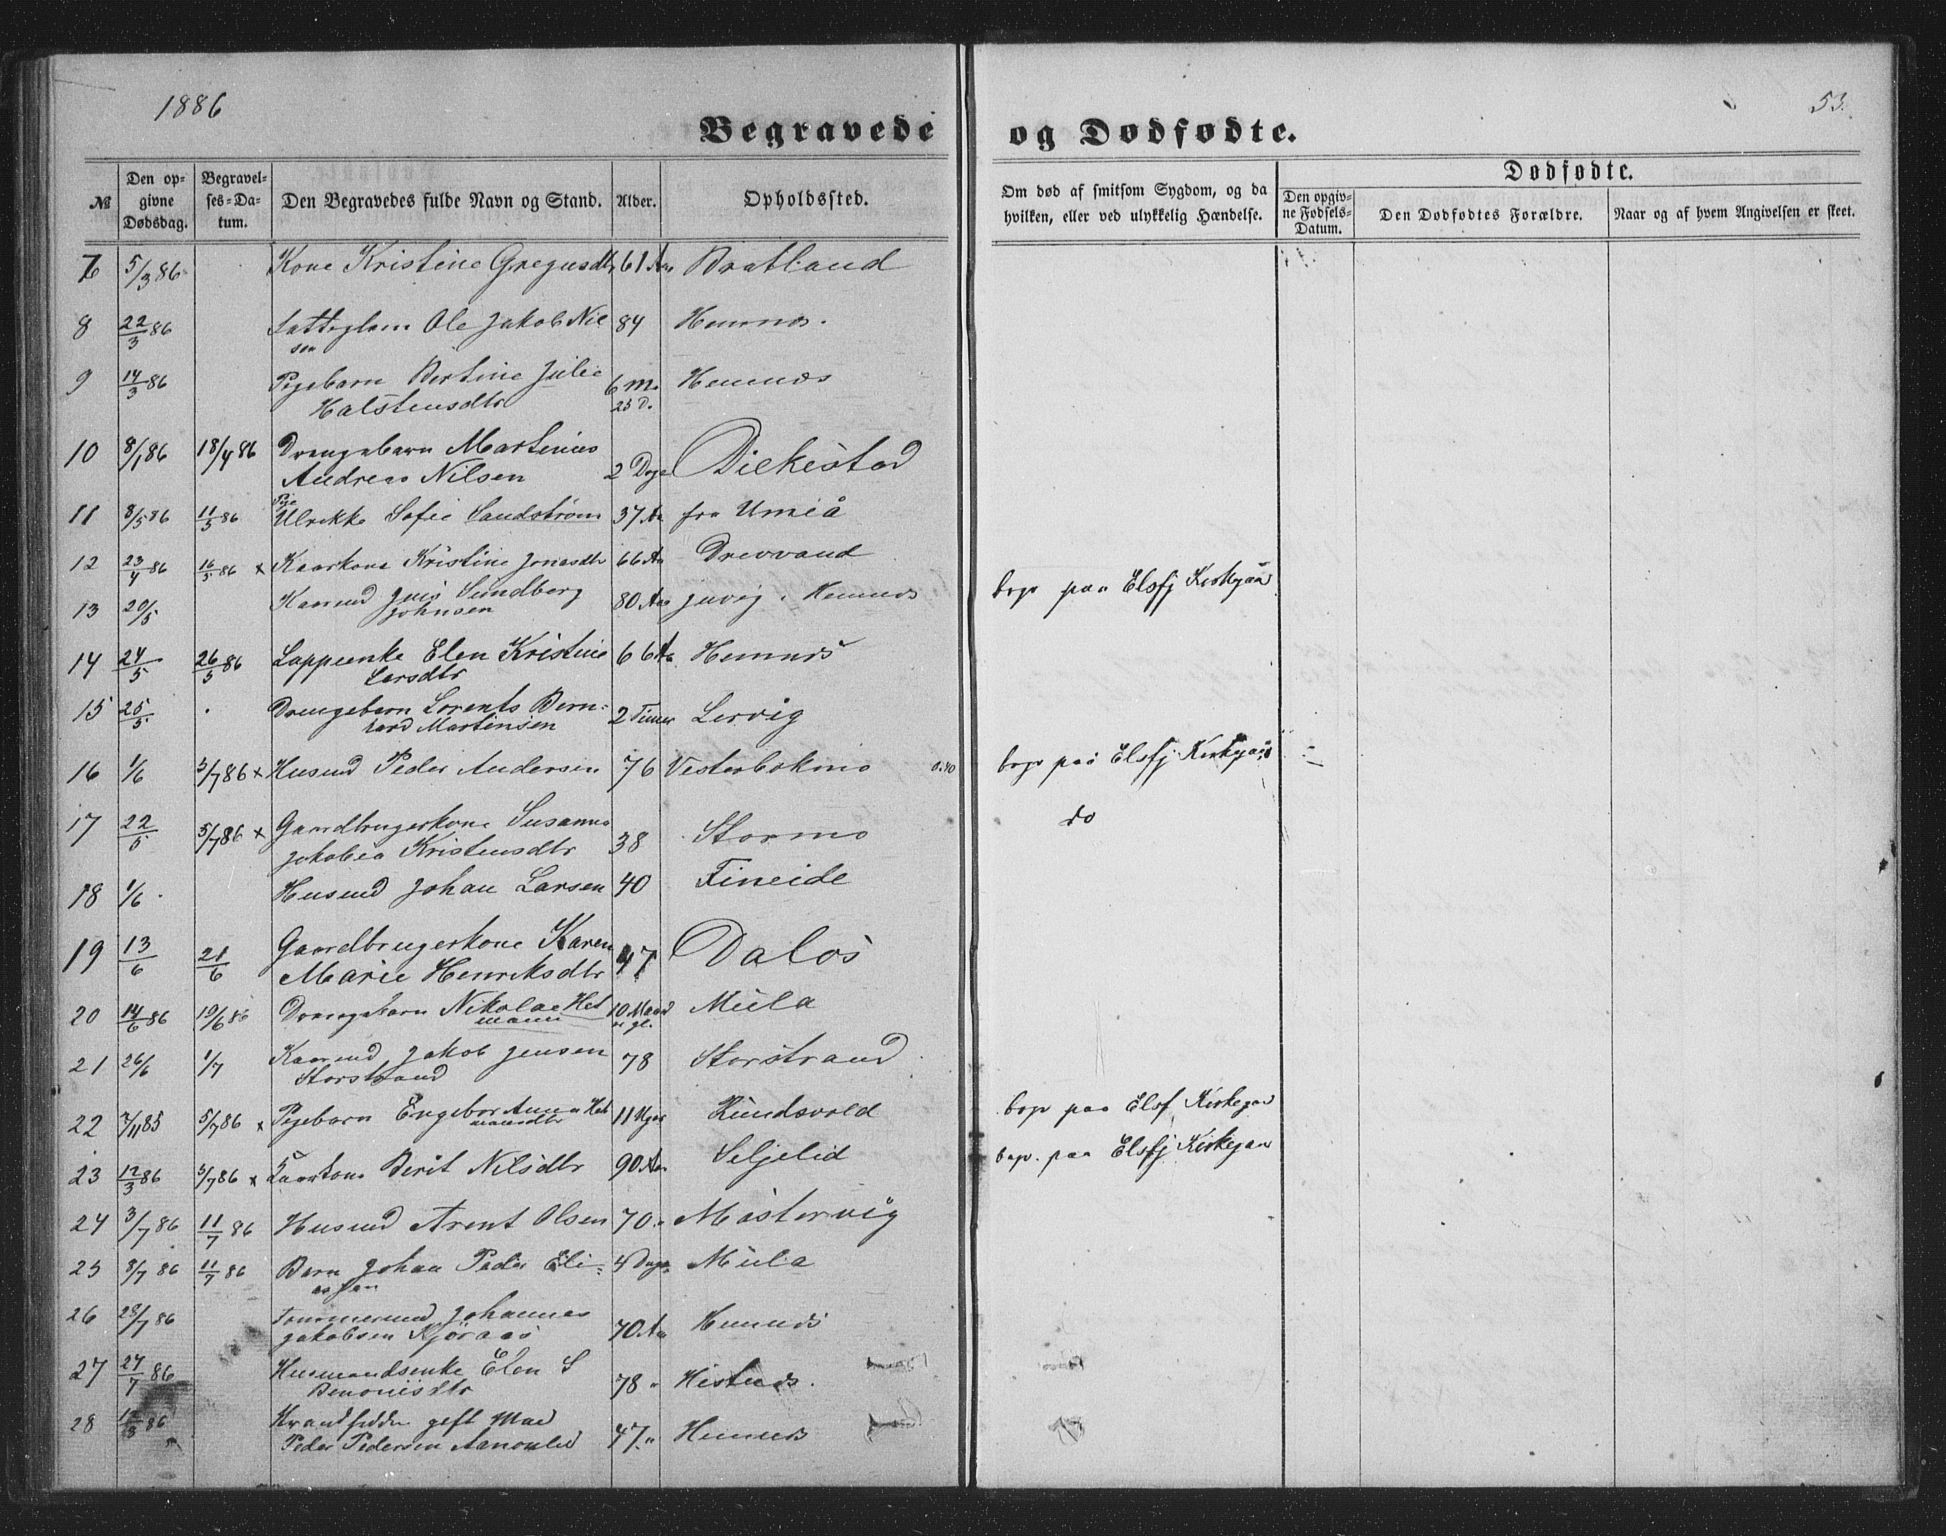 1886
53.
Begravede og Dødfødte.
№ Den opgivne Dødsdag. Begravelses-Datum. Den Begravedes fulde Navn og Stand. Alder. Opholdssted. Om død af smitsom Sygdom, og da hvilken, eller ved ulykkelig Hændelse. Dødfødte. Den opgivne Fødsels-Datum. Den Dødfødtes Forældre. Naar og af hvem Angivelsen er skeet.
7 5/3 86 Kone Kristine Gregusdtr 61 Aar Bratland
8 22/3 86 Ole Jakob Niel
sen 84 Hemnes.
9 14/3 86 Pigebarn Bertine Julie
Halstensdtr 6 M. 25 D. Hemnes
10 8/1 86 18/4 86 Drengebarn Martinus
Andreas Nilsen 2 Dage
11 8/5 86 11/5 86 Pige
Ulrikke Sofie Sandstrøm 37 Aa fra Umeå
12 23/4 86 16/5 86 x Kaarkone Kristine Jonasdtr 66 Aa Drevvand begr paa Elsfj Kirkegaard
13 20/5 Kaarmd Jens Sundberg
Johnsen 80 Aar Juvig. Hemnes
14 24/5 26/5 86 Lappeenke Elen Kristine
Larsdtr 66 Aa Hemnes
15 25/5 Drengebarn Lorents Bern=
hard Martinsen 2 Timer Lervig
16 1/6 5/7 86 x Husmd Peder Andersen 76 Vesterbekmo 0.40 begr paa Elsfj Kirkegaard
17 22/5 5/7 86 x Gaardbrugerkone Susanna
Jakobea Kristensdtr 38 Stormo do
18 1/6 Husmd Johan Larsen 40 Fineide
19 13/6 21/6 Gaardbrugerkone Karen
Marie Henriksdtr 47 Dalos
20 14/6 86 19/6 86 Drengebarn Nikolae Het
mann 10 Maad Mula
21 26/6 1/7 Kaarmd Jakob Jensen
Storstrand 78 Storstrand
22 7/11 85 5/7 86 x Pigebarn Engebor Anna Het
manndtr 11 Uger begr paa Elsf Kirkegaa
23 12/3 86 5/7 86 x Kaarkone Berit Nilsdtr 90 Aar Seljelid begr. paa Elsfj Kirkegaa
24 3/7 86 11/7 86 Husmd Arent Olsen 70 " Mastervig
25 8/7 86 11/7 86 Barn Johan Peder Eli=
assen 4 Dage Mula
26 28/7 86 Tommermd Johannes
Jakobsen 70 Aa Hemnes
27 27/7 86 Husmandsenke Elen S
Benonisdtr 78 "
28 86 gift Mad
Peder Pedersen 47 " Hemnes